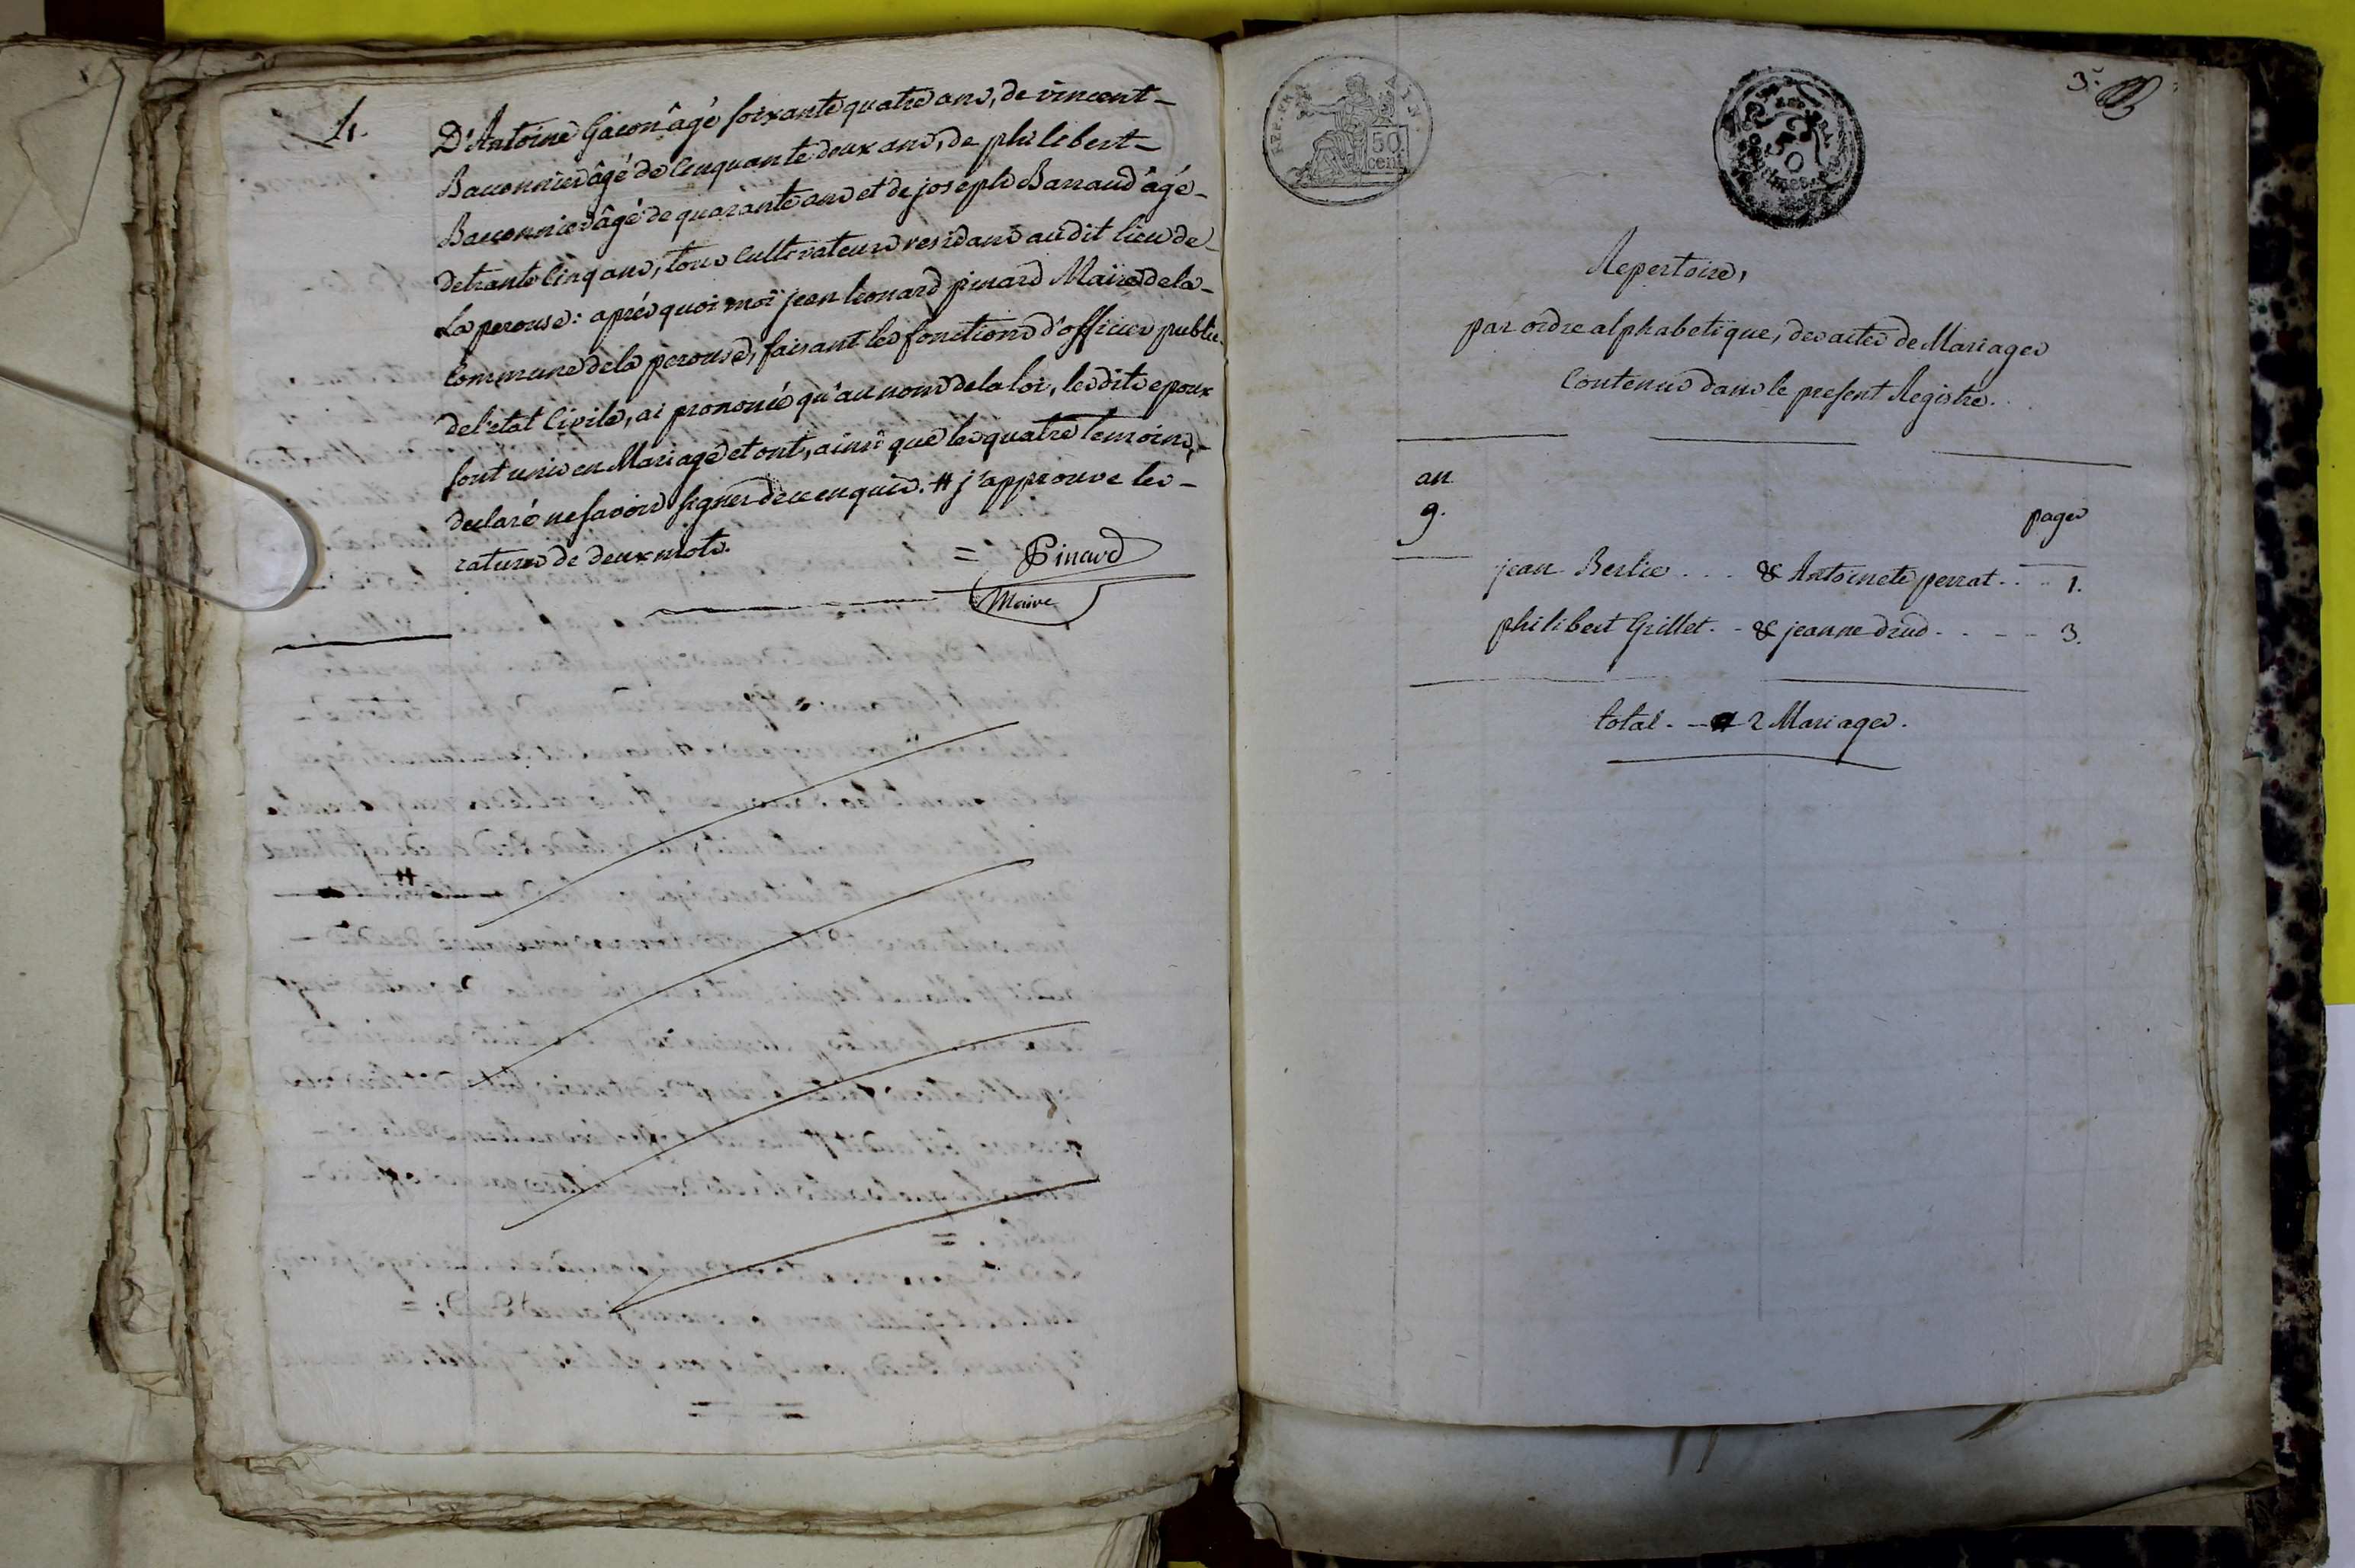 4.
D'Antoine Gacon âgé soixante quatre ans, de vincent-
Bauonnier âgé de Cinquante deux ans, de philibert-
Bauonnier âgé de quarante ans et de joseph Barraud âgé-
de trante Cinq ans, tous Cultivateurs residans audit lieu de-
La perouse: après quoi moi jean leonard pinard Maire dela-
Commune dela perouse, faisant les fonctions d'officier public
del'etat Civile, ai prononcé qu'au nom dela loi, lesdits epoux
sont unis en Mariage et ont, ainsi que les quatre temoins,-
declaré ne savoir signer dece enquis. # j'approuve les-
ratures de deux mots.
= Pinard
Maire
3e.
REP. FRA
AIN.
50
cent
Repertoire,
par ordre alphabetique, des actes de Mariages
Contenus dans le present Registre.
an
9.
pages
jean Berlie . . . & Antoinete perrat . . . 1.
philibert Grillet. - & jeanne drud - . - - 3.
total. - 2 Mariages.